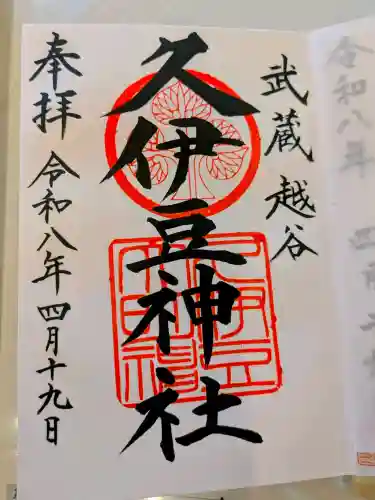 武蔵 越谷
久伊豆神社
奉拝 令和八年 四月十九日
令和八年